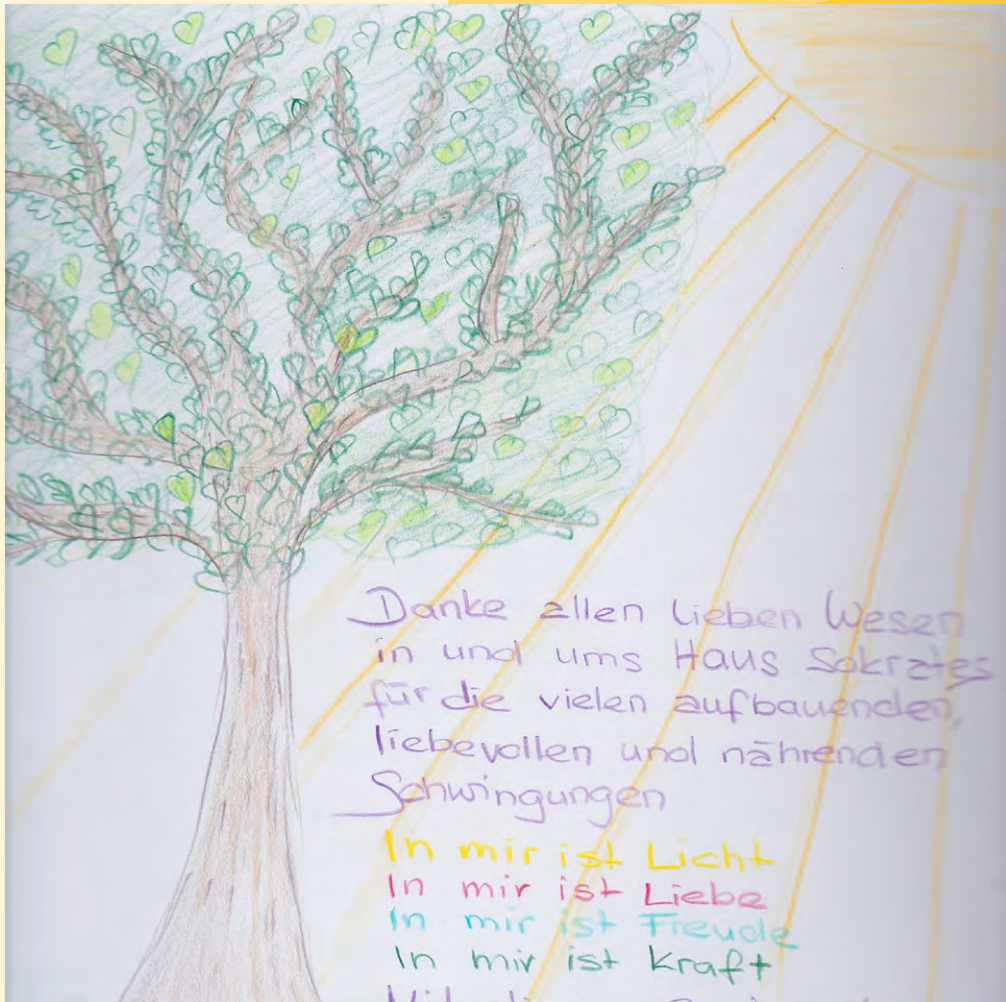 Danke allen lieben Wesen
in und ums Haus Sokrates
für die vielen aufbauenden,
liebevollen und nährenden
Schwingungen
In mir ist Licht
In mir ist Liebe
In mir ist Freude
In mir ist Kraft